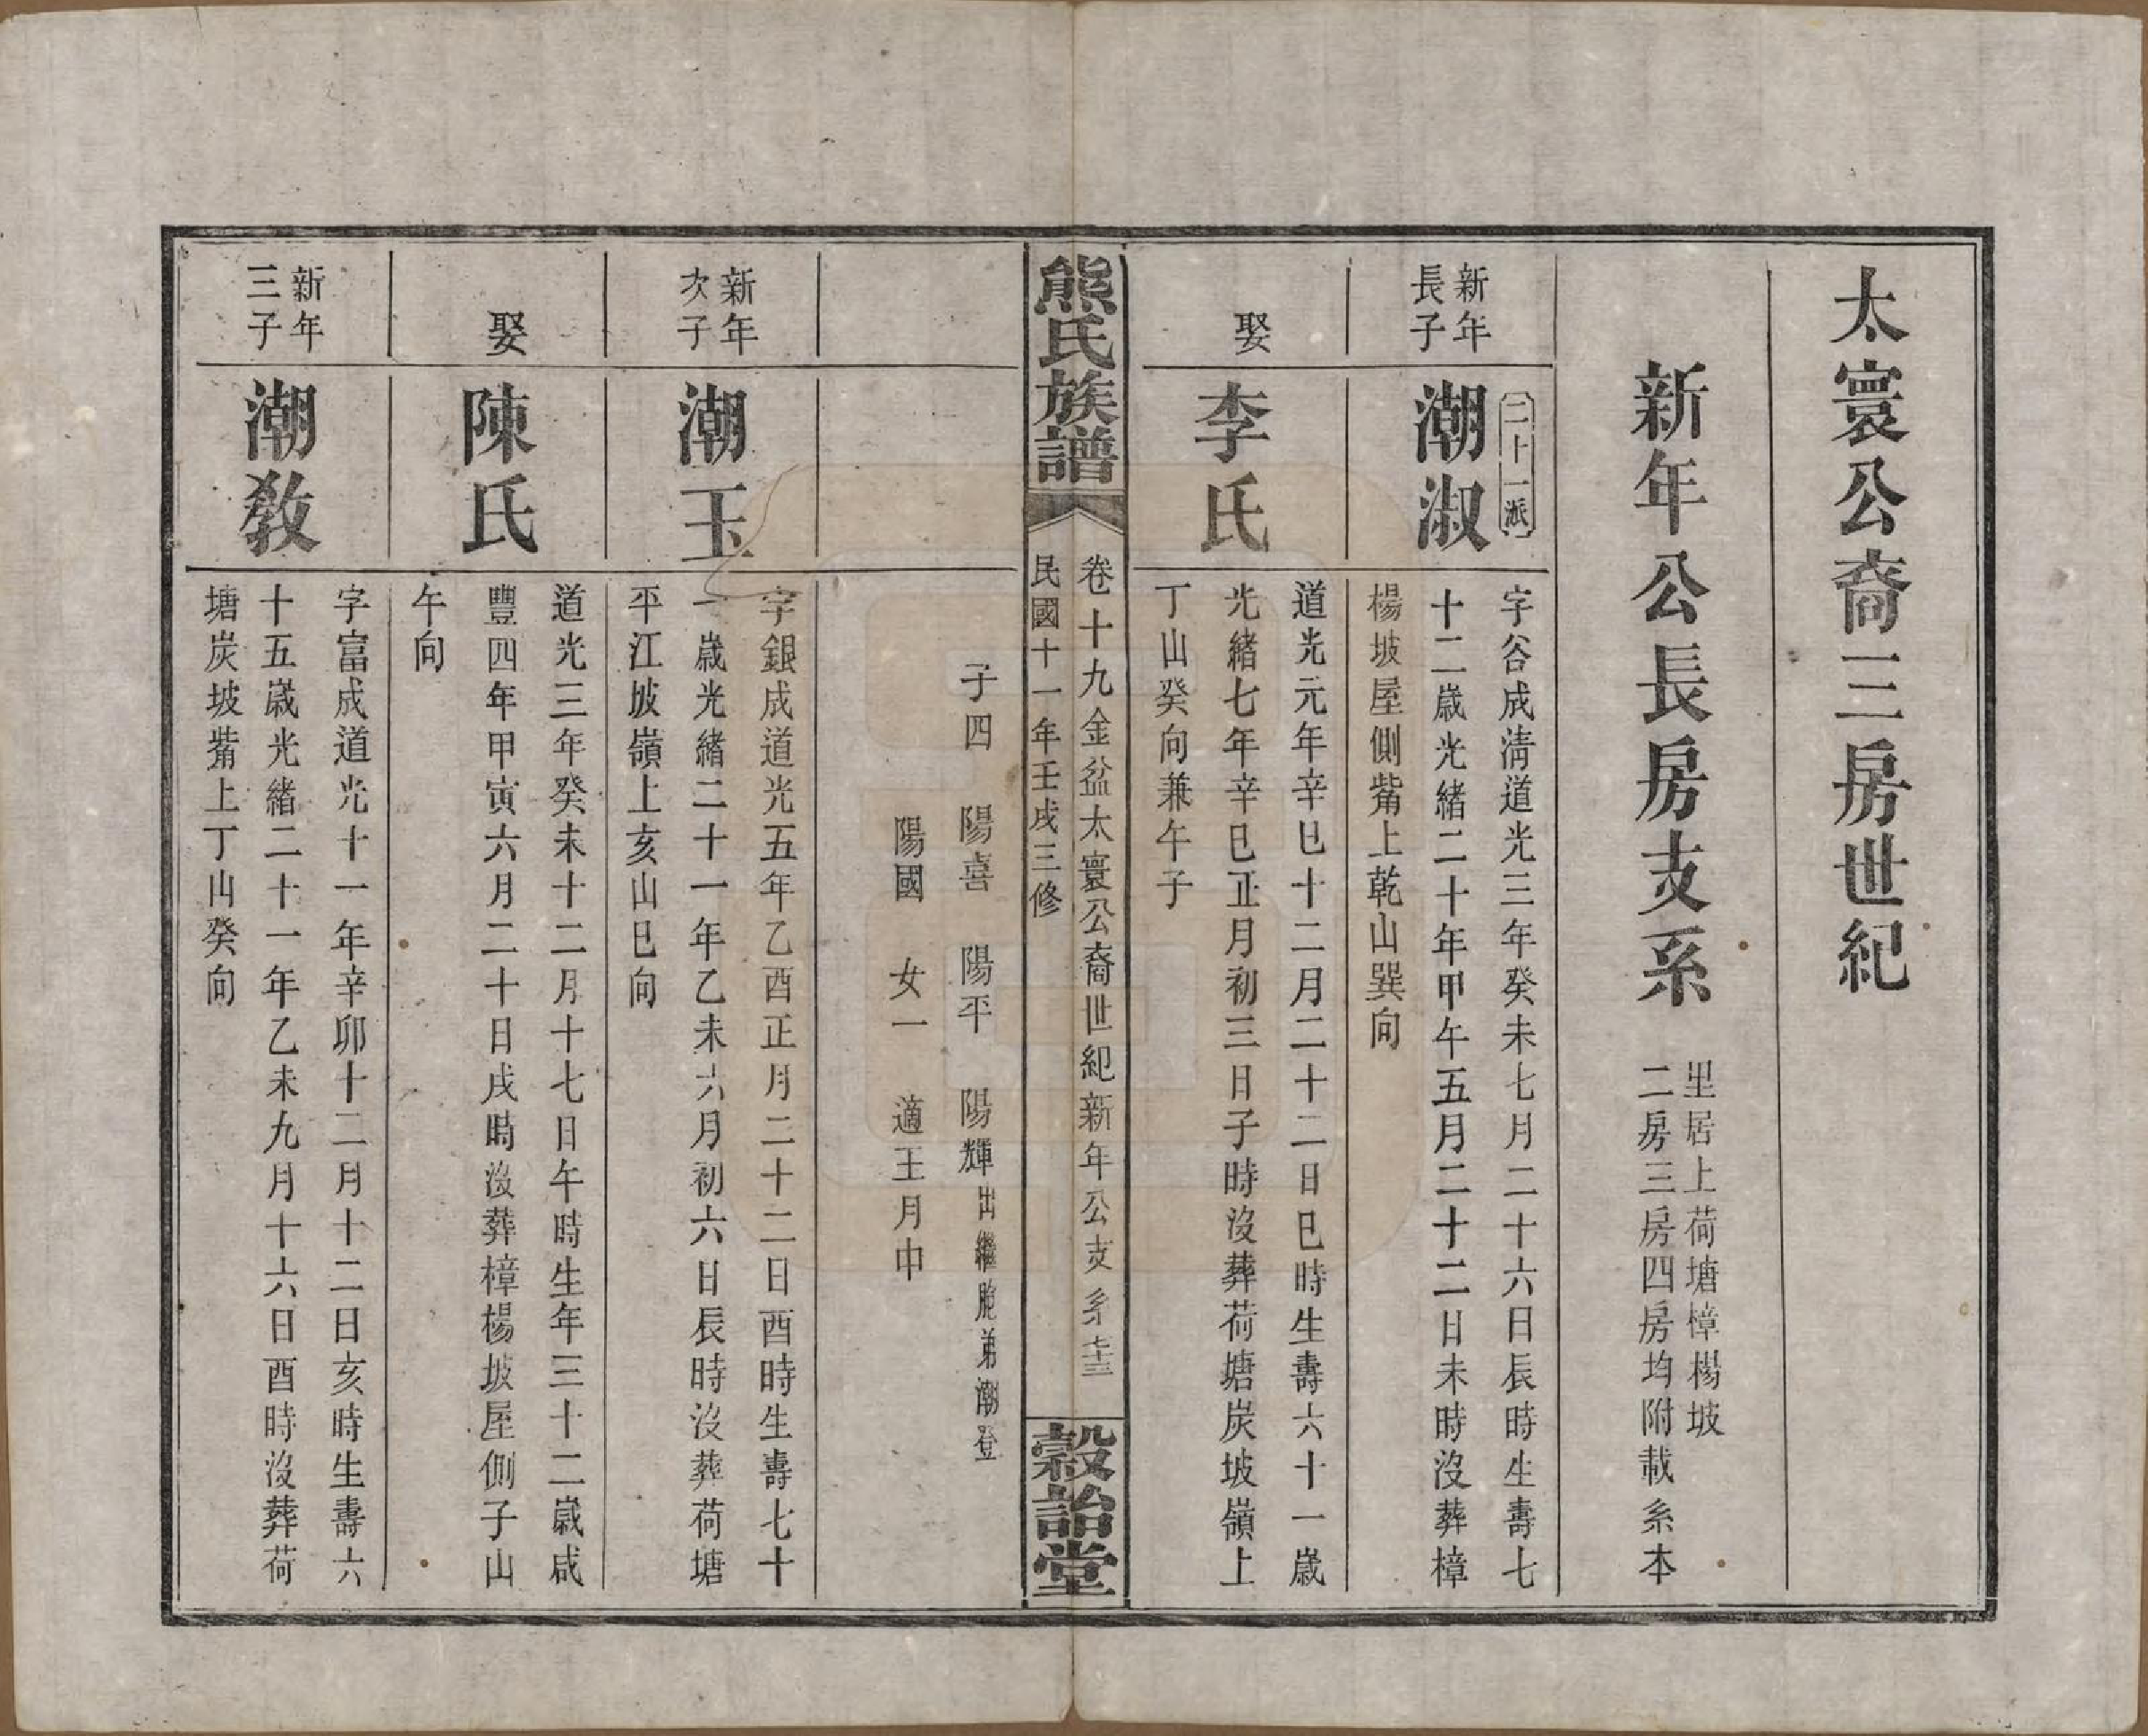 太寰公裔三房世紀
新年公長房支系
里居上荷塘樟楊坡
二房三房四房均附載系本
新年
長子
二十一派
潮淑
字谷成清道光三年癸未七月二十六日辰時生壽七
十二歲光緒二十年甲午五月二十二日未時沒葬樟
楊坡屋側觜上乾山巽向
娶
李氏
道光元年辛巳十二月二十二日巳時生壽六十一歲
光緒七年辛巳正月初三日子時沒葬荷塘炭坡嶺上
丁山癸向兼午子
熊氏族譜
卷十九金盆太寰公裔世紀新年公支系 七十三
民國十一年壬戌三修
穀詒堂
子四 陽喜 陽平 陽輝出繼胞弟潮登
陽國 女一 適王月中
新年
次子
潮玉
字銀成道光五年乙酉正月二十二日酉時生壽七十
一歲光緒二十一年乙未六月初六日辰時沒葬荷塘
平江坡嶺上亥山巳向
娶
陳氏
道光三年癸未十二月十七日午時生年三十二歲咸
豐四年甲寅六月二十日戌時沒葬樟楊坡屋側子山
午向
新年
三子
潮敎
字富成道光十一年辛卯十二月十二日亥時生壽六
十五歲光緒二十一年乙未九月十六日酉時沒葬荷
塘炭坡觜上丁山癸向